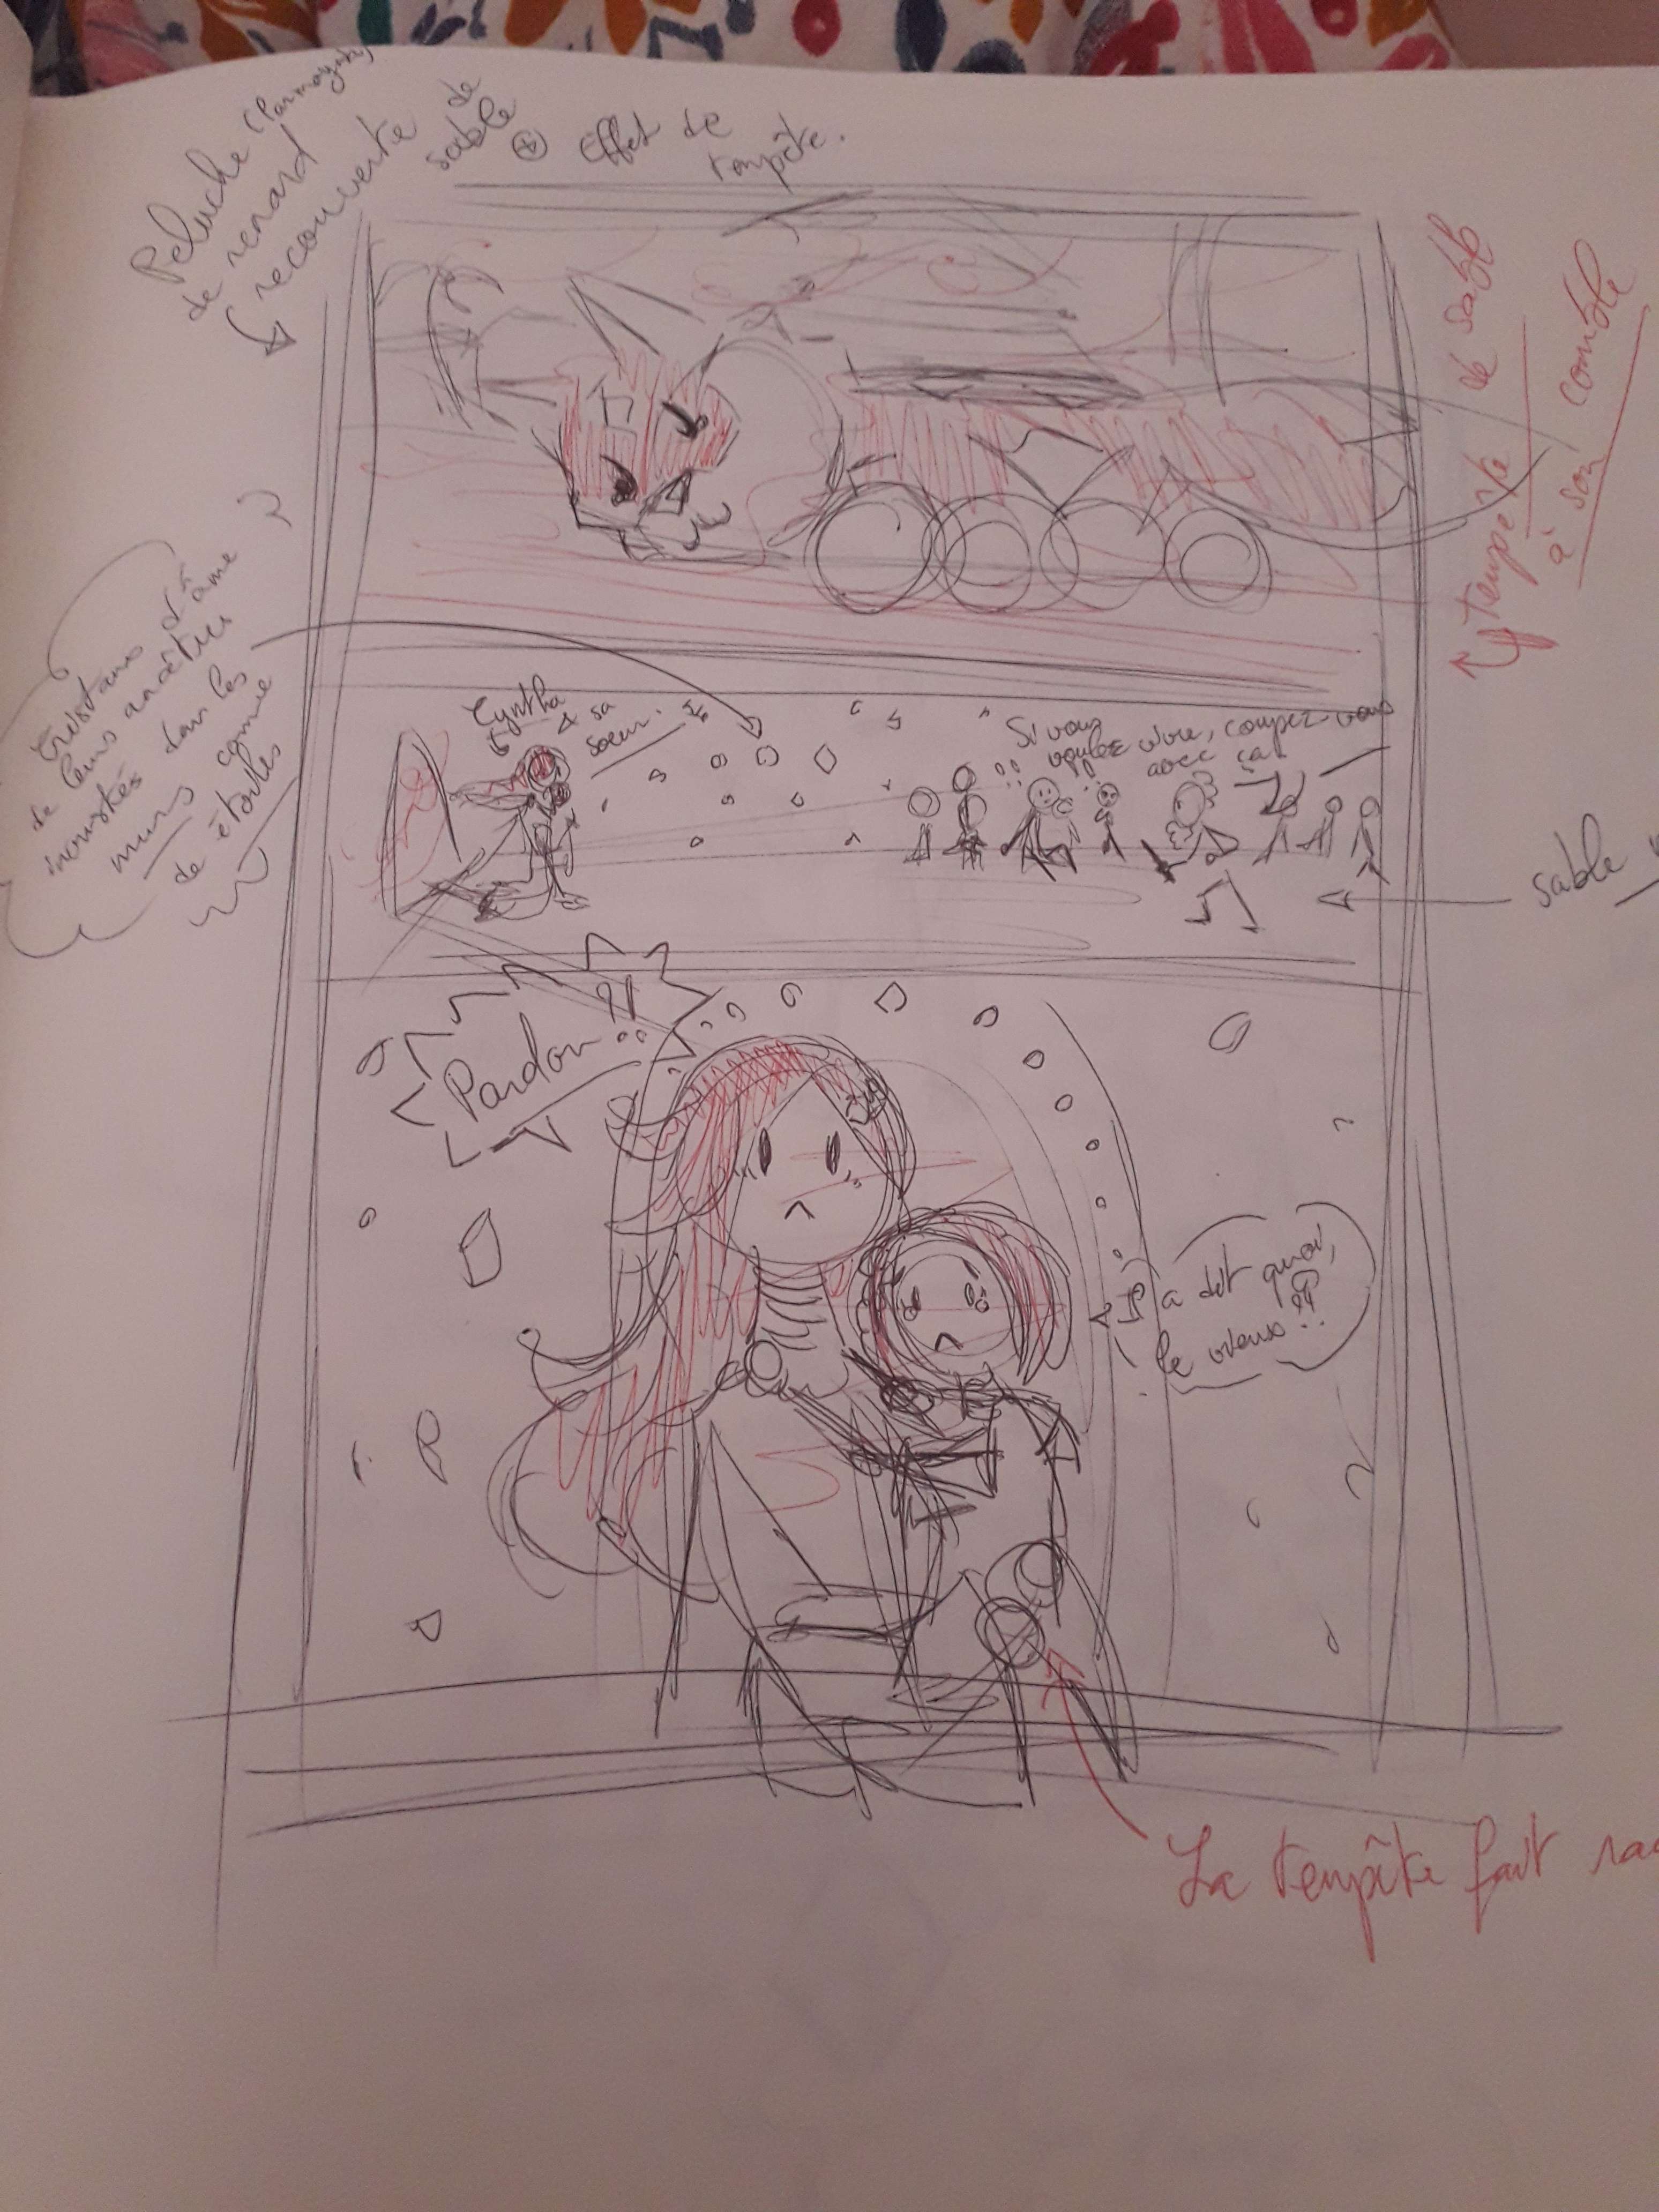 Peluche
de renard
recouverte
de
sable
⊕ Effet de
tempête.
tempête de sable
à son comble
cristaux d'âme
de leurs ancêtres
incrustés dans les
murs comme
de étoiles
Cyntha
& sa
soeur.
Si vous
voulez vivre, coupez-vous
avec ça!
sable
Pardon ?!
Il a dit quoi,
le vieux ??
La tempête fait